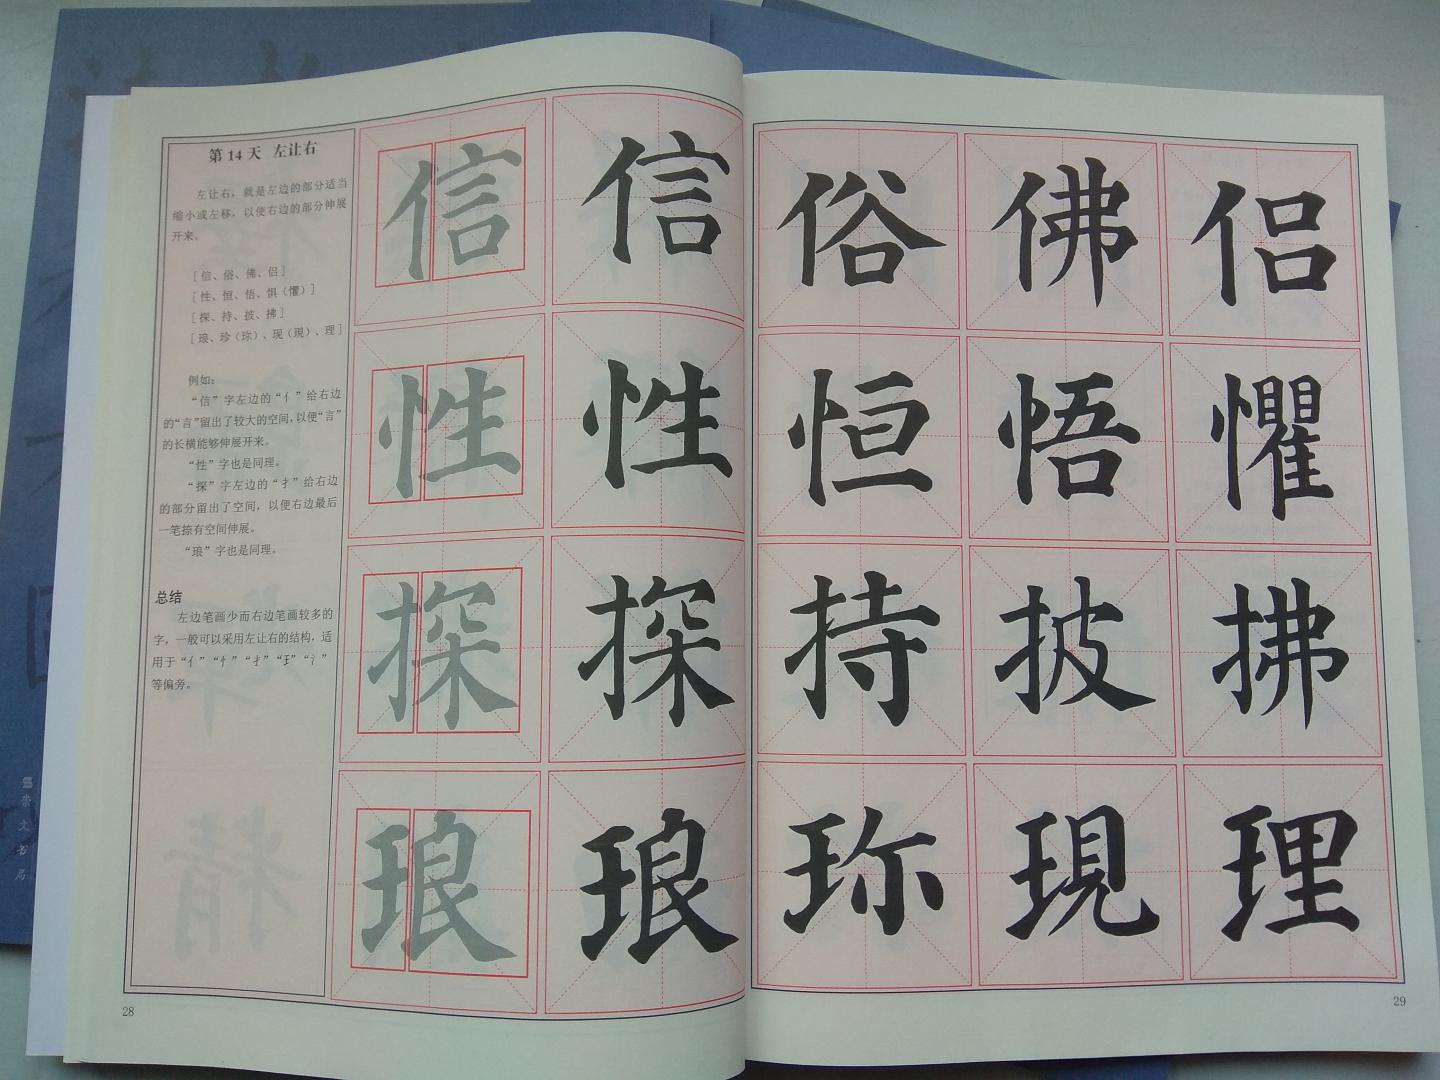 第14天 左让右
左让右，就是左边的部分适当
缩小或左移，以使右边的部分伸展
开来。
［信、俗、佛、侣］
［性、恒、悟、惧（懼）］
［探、持、披、拂］
［琅、珍（珎）、现（現）、理］
例如：
“信”字左边的“亻”给右边
的“言”留出了较大的空间，以便“言”
的长横能够伸展开来。
“性”字也是同理。
“探”字左边的“扌”给右边
的部分留出了空间，以便右边最后
一笔捺有空间伸展。
“琅”字也是同理。
总结
左边笔画少而右边笔画较多的
字，一般可以采用左让右的结构，适
用于“亻”“忄”“扌”“𤣩”“氵”
等偏旁。
信 信 俗 佛 侣
性 性 恒 悟 懼
探 探 持 披 拂
琅 琅 珎 現 理
28
29
崇文书局